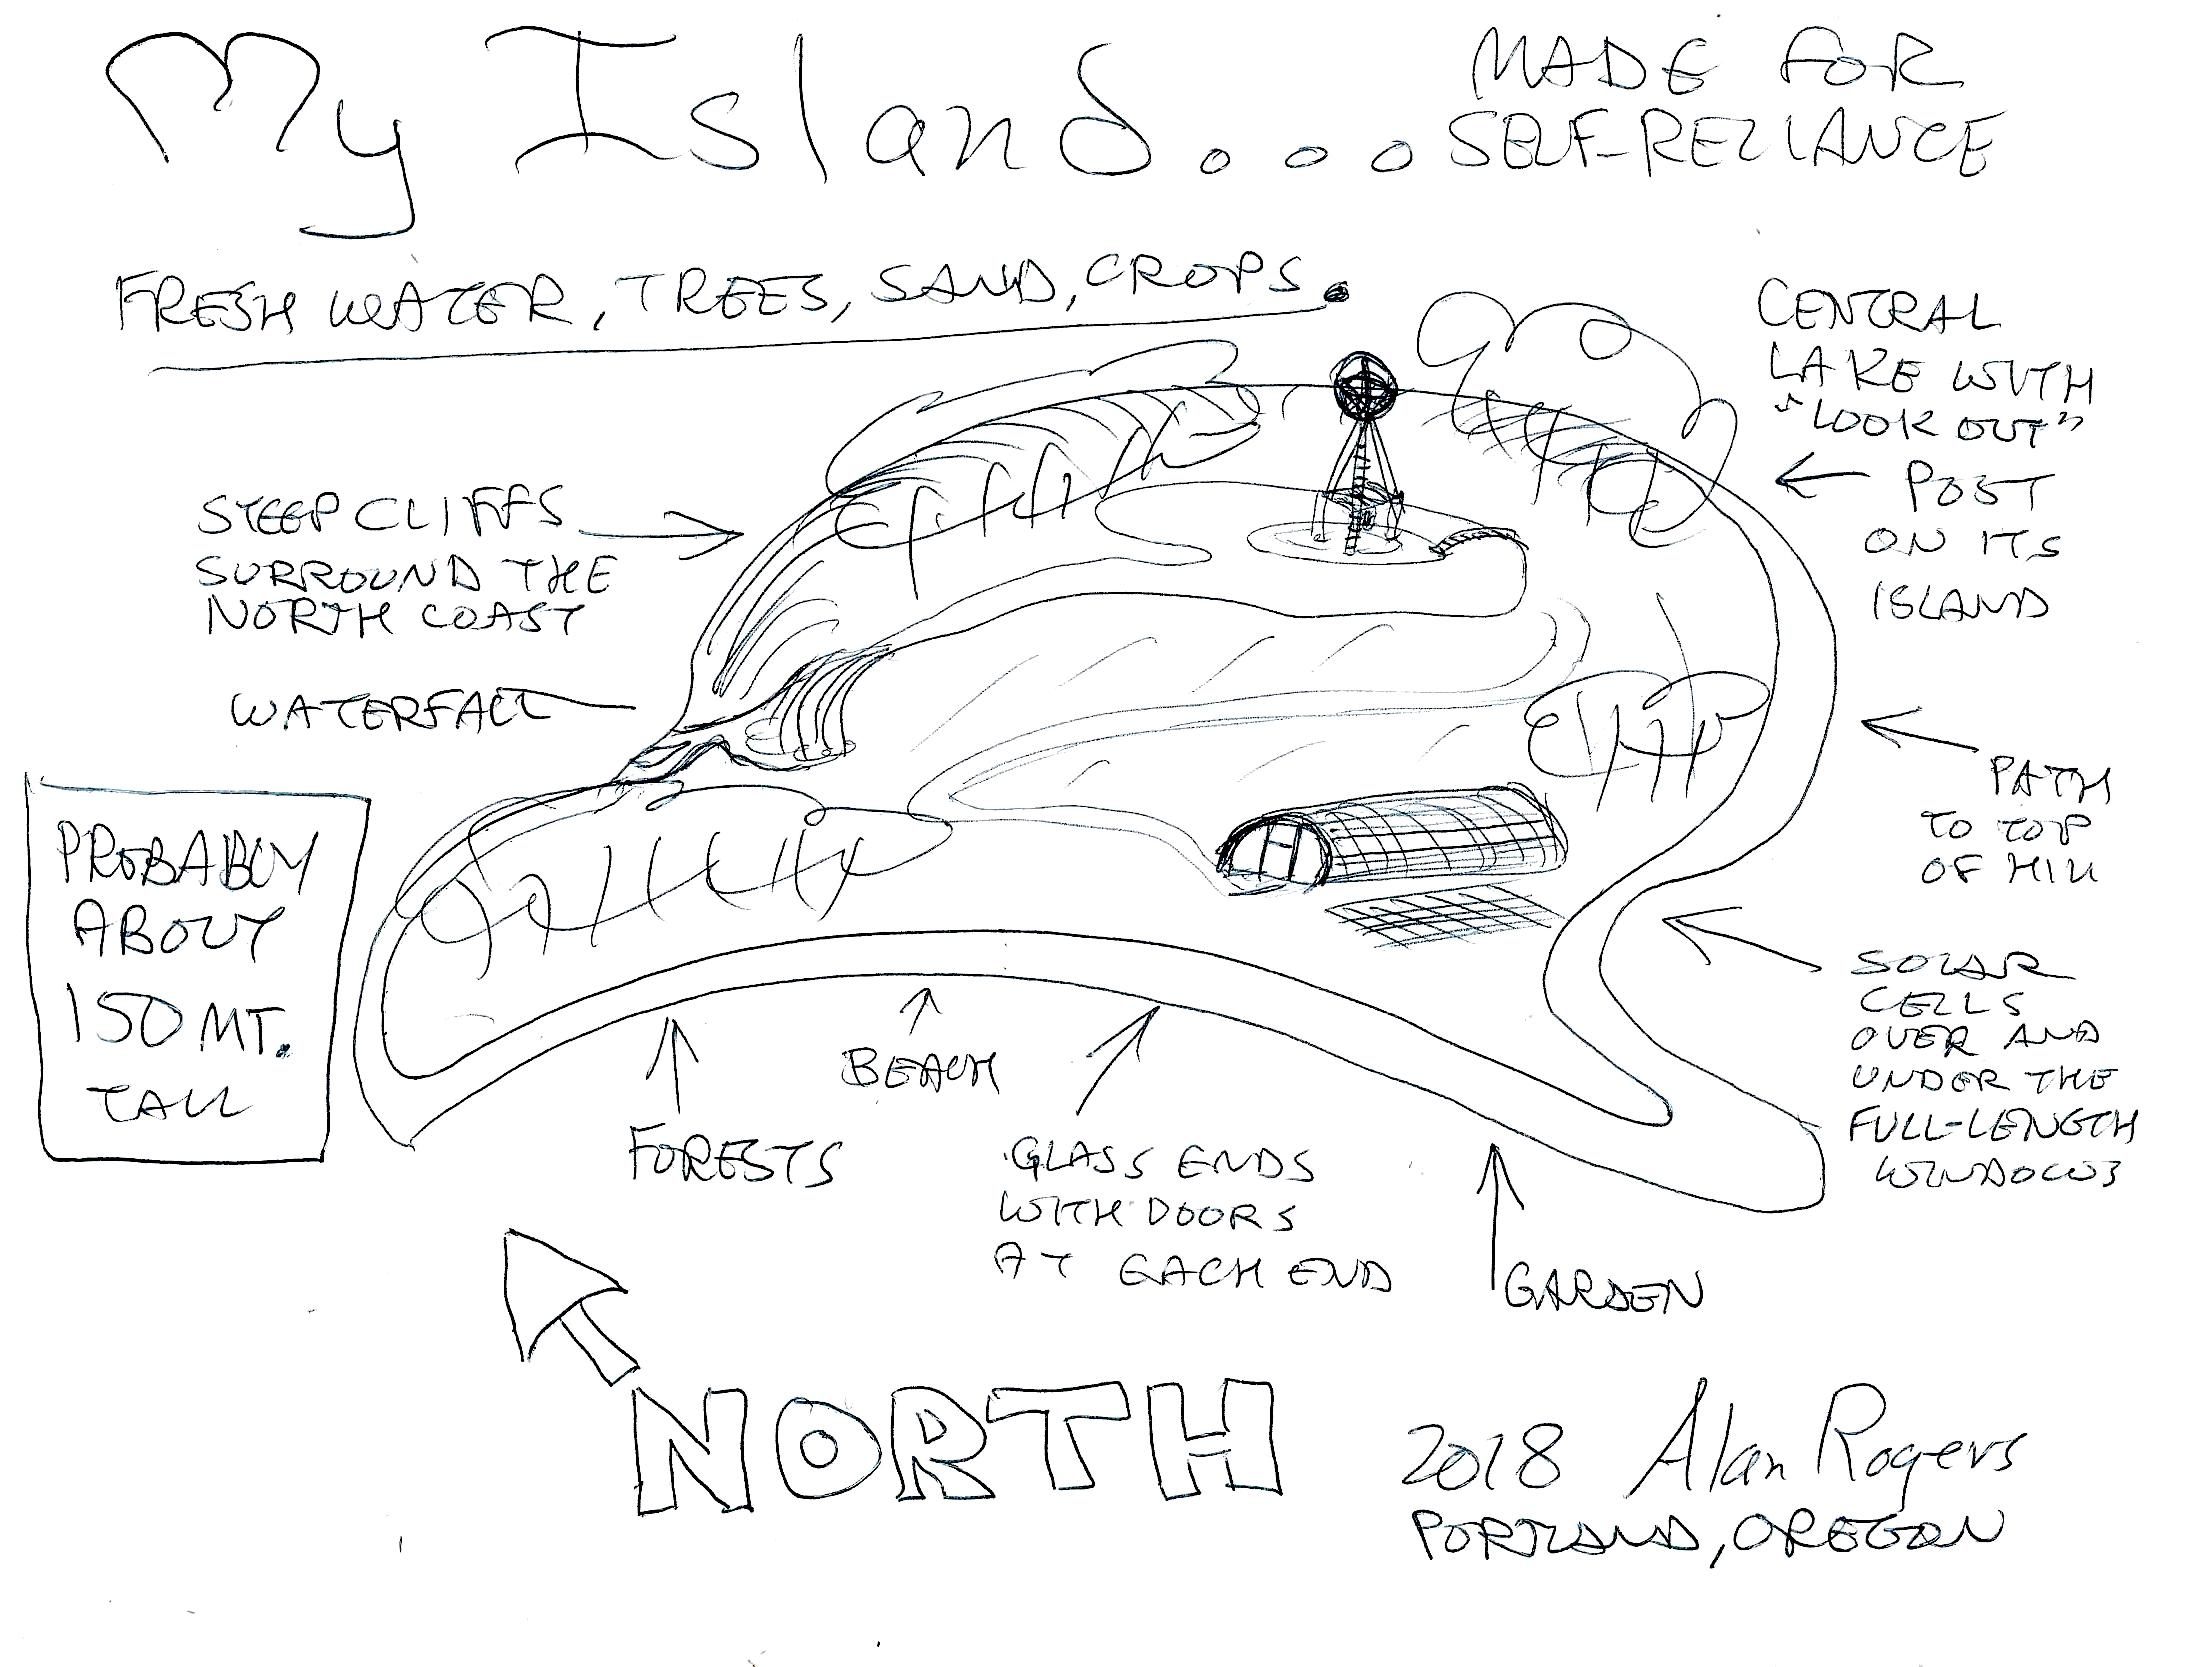 My Island...
MADE FOR
SELF-RELIANCE
FRESH WATER, TREES, SAND, CROPS.
CENTRAL
LAKE WITH
"LOOK OUT"
POST
ON ITS
ISLAND
STEEP CLIFFS
SURROUND THE
NORTH COAST
WATERFALL
PATH
TO TOP
OF HILL
PROBABLY
ABOUT
150 MT.
TALL
SOLAR
CELLS
OVER AND
UNDER THE
FULL-LENGTH
WINDOWS
BEACH
FORESTS
GLASS ENDS
WITH DOORS
AT EACH END
GARDEN
NORTH
2018 Alan Rogers
PORTLAND, OREGON